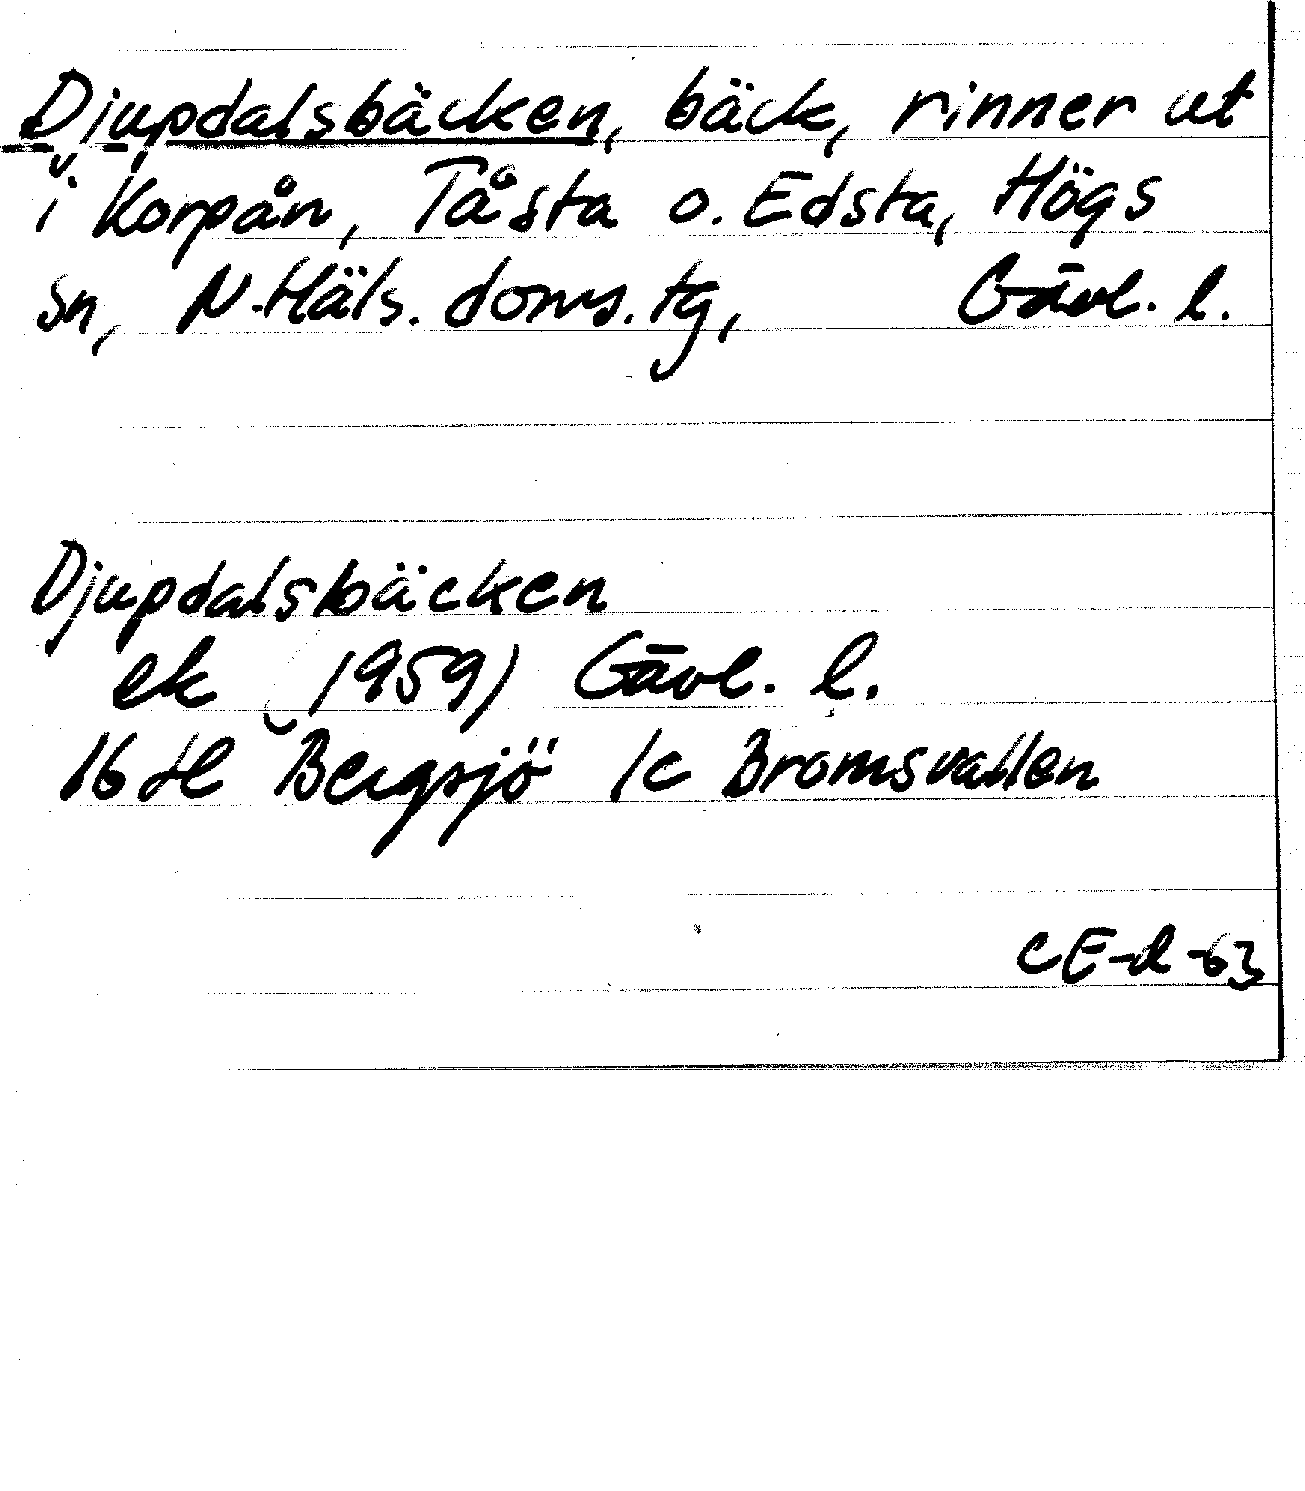 Djupdalsbäcken, bäck, rinner ut
i Korpån, Tåsta o. Edsta, Högs
sn, N. Häls. doms. tg, Gävl. l.
Djupdalsbäcken
ek (1959) Gävl. l.
16 H Bergsjö 1c Bromsvallen
CE-d-63